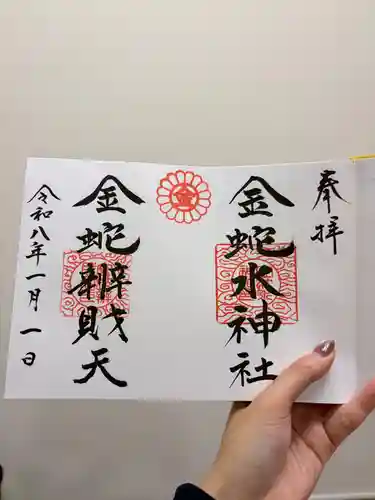 奉拝
金蛇水神社
金
金蛇辨財天
令和八年一月一日